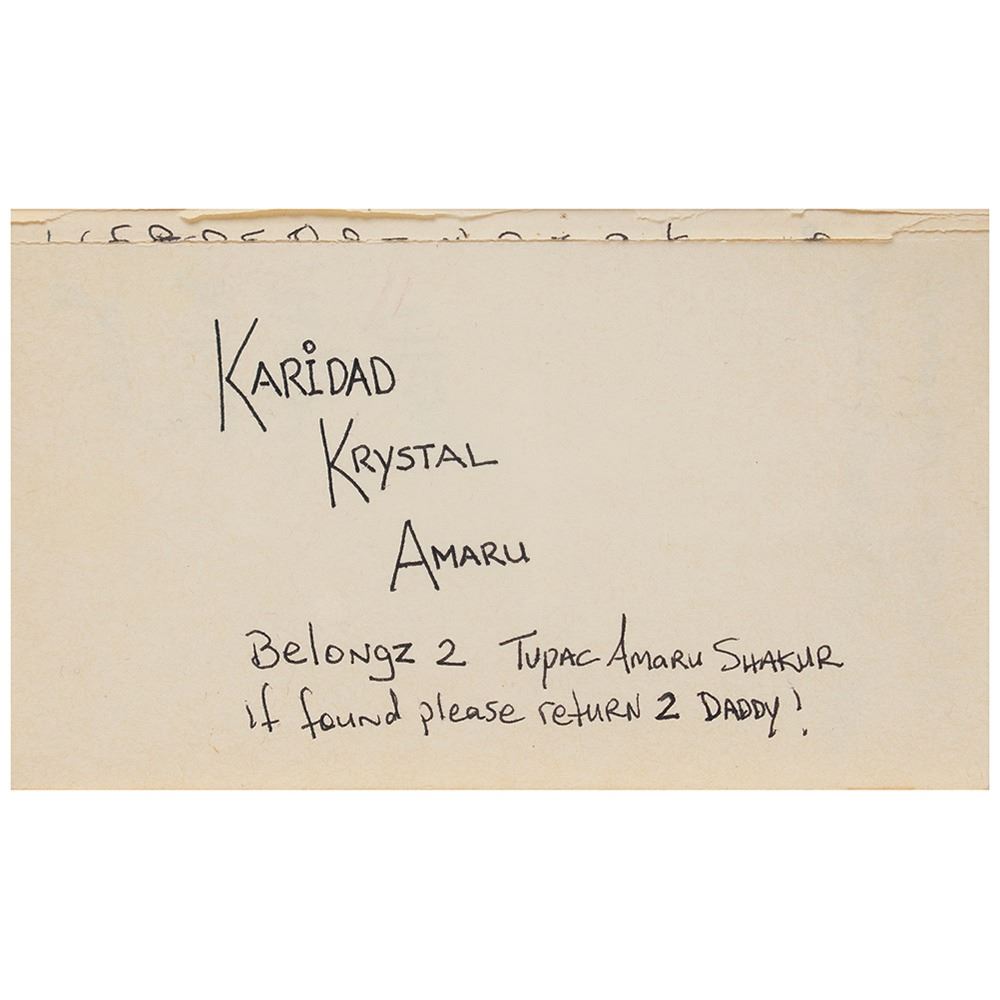 KARiDAD
KRYSTAL
AMARU
Belongz 2 TUPAC AMARU SHAKUR
if found please retuRN 2 DADDY!